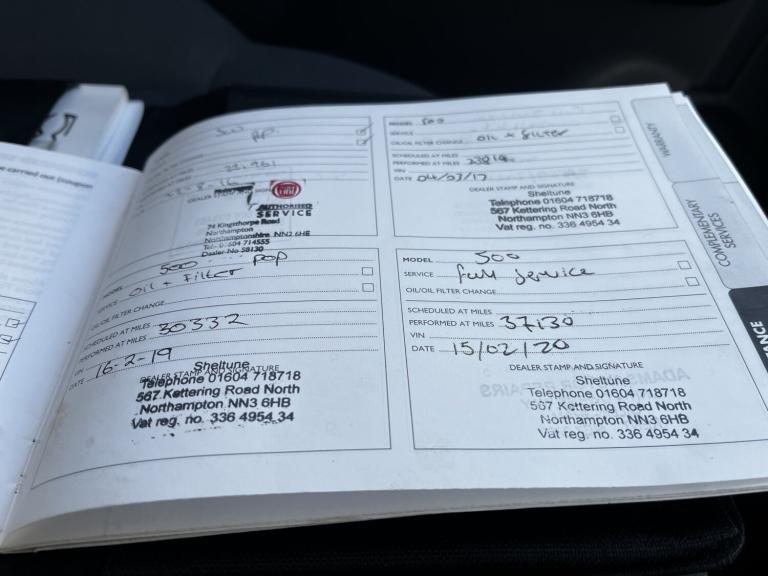 e carried out (coupon
500
pop
DEALER STAMP
FIAT
AUTHORISED
SERVICE
74 Kingsthorpe Road
Northampton
Northamptonshire, NN2 6HE
Dealer No 58130
MODEL 500
SERVICE oil + filter
OIL/OIL FILTER CHANGE
SCHEDULED AT MILES
PERFORMED AT MILES
VIN
DATE 04/03/17
DEALER STAMP AND SIGNATURE
Sheltune
Telephone 01604 718718
567 Kettering Road North
Northampton NN3 6HB
Vat reg. no. 336 4954 34
MODEL 500 pop
SERVICE oil + Filter
OIL/OIL FILTER CHANGE
SCHEDULED AT MILES
PERFORMED AT MILES 30332
VIN
DATE 16-2-19
DEALER STAMP AND SIGNATURE
Sheltune
Telephone 01604 718718
567 Kettering Road North
Northampton NN3 6HB
Vat reg. no. 336 4954 34
MODEL 500
SERVICE full service
OIL/OIL FILTER CHANGE
SCHEDULED AT MILES
PERFORMED AT MILES 37130
VIN
DATE 15/02/20
DEALER STAMP AND SIGNATURE
Sheltune
Telephone 01604 718718
567 Kettering Road North
Northampton NN3 6HB
Vat reg. no. 336 4954 34
WARRANTY
COMPLEMENTARY
SERVICES